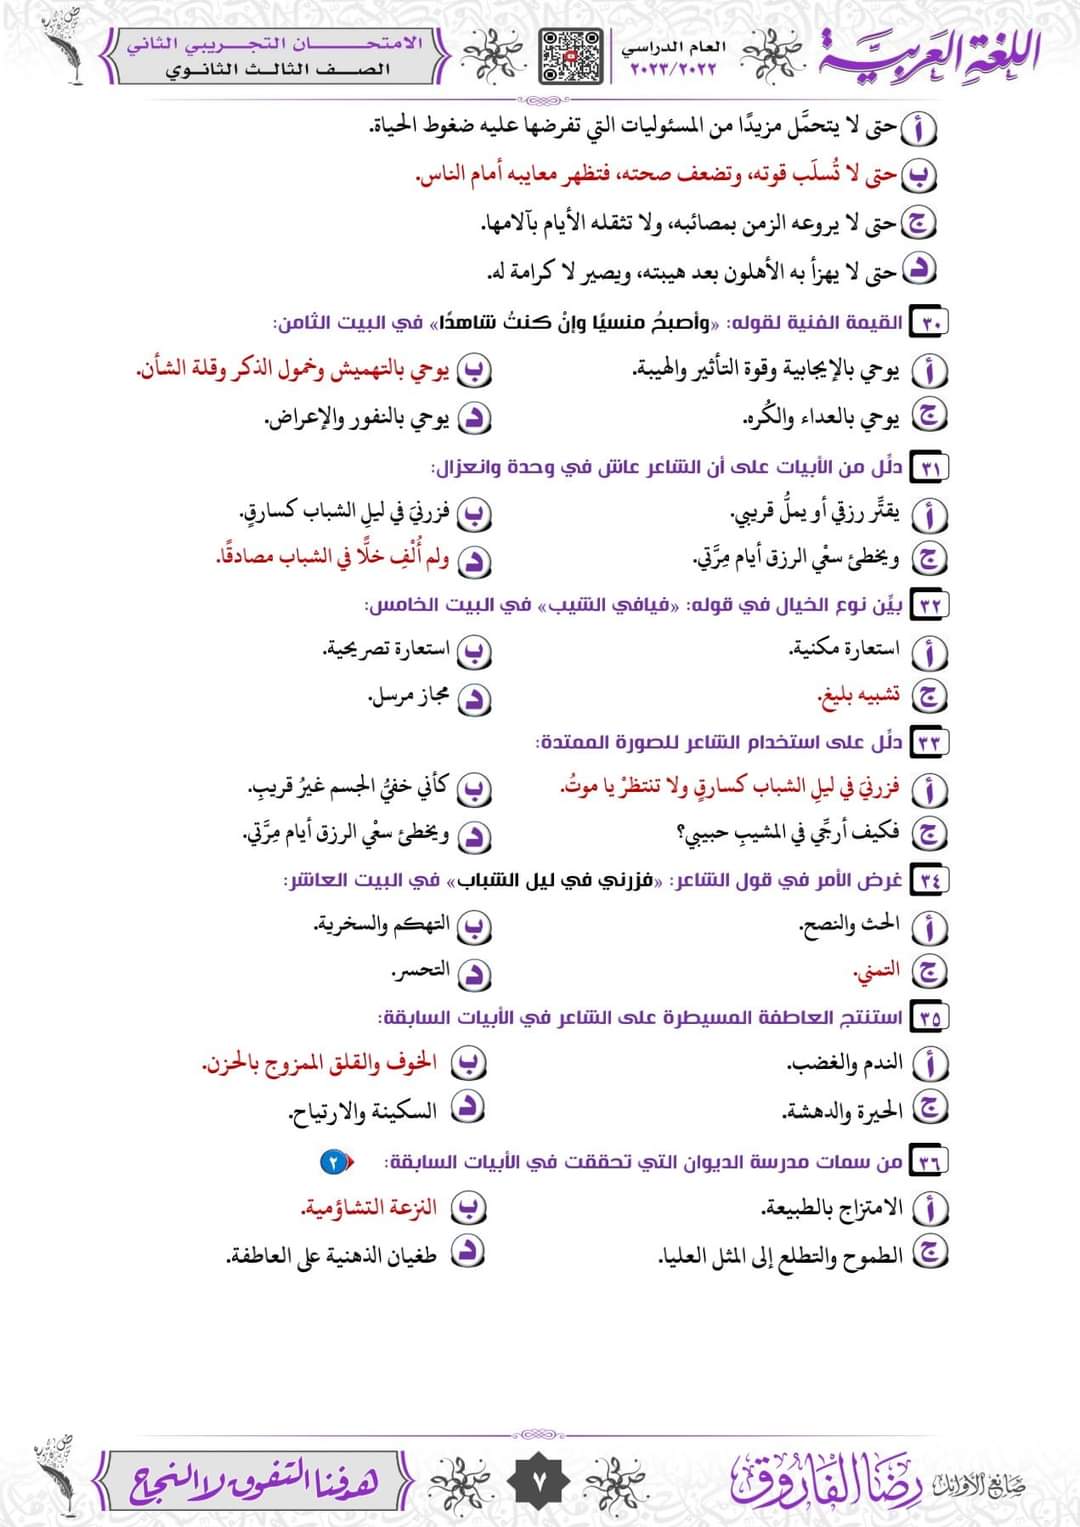 اللغة العربية
العام الدراسي
٢٠٢٣/٢٠٢٢
الامتحان التجريبي الثاني
الصف الثالث الثانوي
أ حتى لا يتحمَّل مزيدًا من المسئوليات التي تفرضها عليه ضغوط الحياة.
ب حتى لا تُسلَب قوته، وتضعف صحته، فتظهر معايبه أمام الناس.
ج حتى لا يروعه الزمن بمصائبه، ولا تثقله الأيام بآلامها.
د حتى لا يهزأ به الأهلون بعد هيبته، ويصير لا كرامة له.
٣٠ القيمة الفنية لقوله: «وأصبحُ منسيًا وإنْ كنتُ شاهدًا» في البيت الثامن:
أ يوحي بالإيجابية وقوة التأثير والهيبة. ب يوحي بالتهميش وخمول الذكر وقلة الشأن.
ج يوحي بالعداء والكُره. د يوحي بالنفور والإعراض.
٣١ دلِّل من الأبيات على أن الشاعر عاش في وحدة وانعزال:
أ يقتَّر رزقي أو يملُّ قريبي. ب فزرنيَ في ليلِ الشباب كسارقٍ.
ج ويخطئ سعْي الرزق أيام مِرَّتي. د ولم أُلْفِ خلًّا في الشباب مصادقًا.
٣٢ بيِّن نوع الخيال في قوله: «فيافي الشيب» في البيت الخامس:
أ استعارة مكنية. ب استعارة تصريحية.
ج تشبيه بليغ. د مجاز مرسل.
٣٣ دلِّل على استخدام الشاعر للصورة الممتدة:
أ فزرنيَ في ليلِ الشباب كسارقٍ ولا تنتظرْ يا موتُ. ب كأني خفيُّ الجسم غيرُ قريبِ.
ج فكيف أرجِّي في المشيبِ حبيبي؟ د ويخطئ سعْي الرزق أيام مِرَّتي.
٣٤ غرض الأمر في قول الشاعر: «فزرني في ليل الشباب» في البيت العاشر:
أ الحث والنصح. ب التهكم والسخرية.
ج التمني. د التحسر.
٣٥ استنتج العاطفة المسيطرة على الشاعر في الأبيات السابقة:
أ الندم والغضب. ب الخوف والقلق الممزوج بالحزن.
ج الحيرة والدهشة. د السكينة والارتياح.
٣٦ من سمات مدرسة الديوان التي تحققت في الأبيات السابقة: ٢
أ الامتزاج بالطبيعة. ب النزعة التشاؤمية.
ج الطموح والتطلع إلى المثل العليا. د طغيان الذهنية على العاطفة.
صانع الأوائل رضا الفاروق
٧
هدفنا التفوق لا النجاح